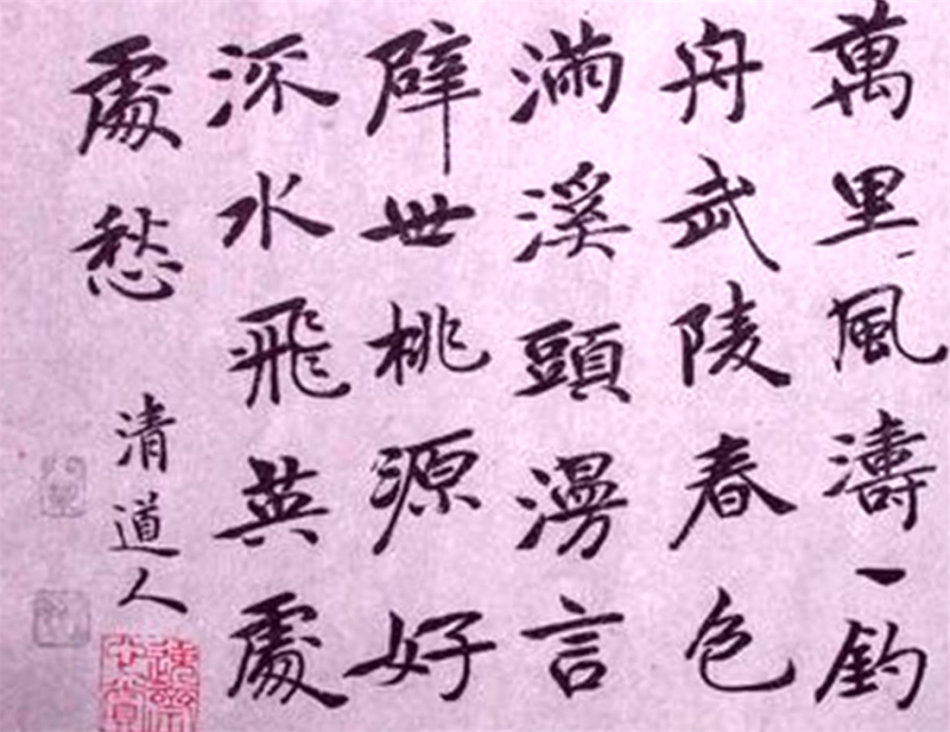 萬里風濤一釣
舟武陵春色
滿溪頭漫言
辟世桃源好
深水飛英處
處愁
清道人